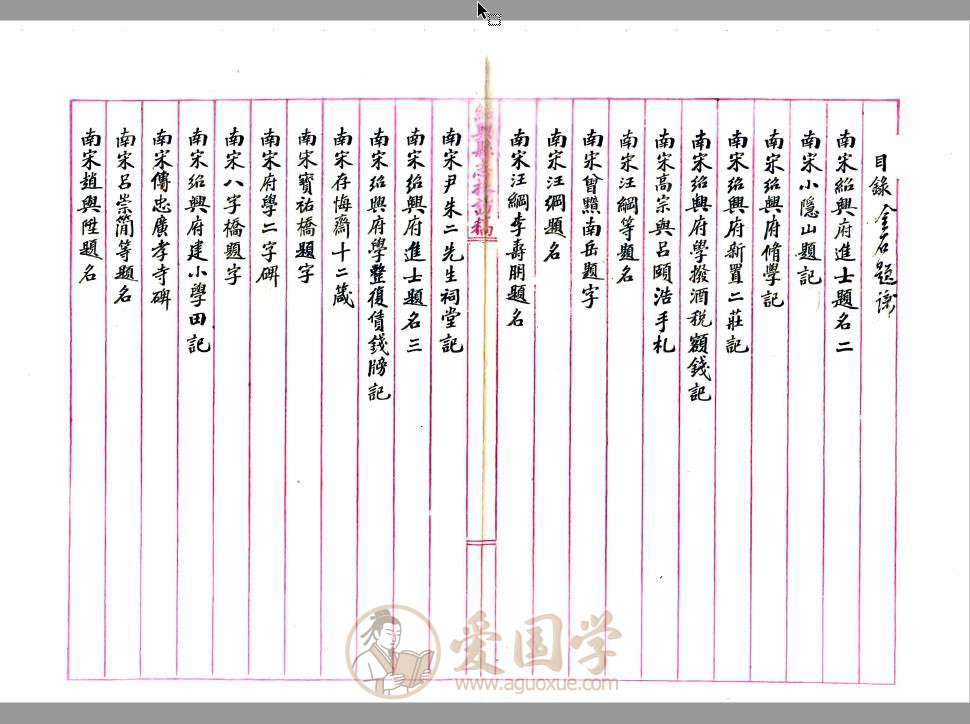 目錄 金石題識
南宋紹興府進士題名二
南宋小隱山題記
南宋紹興府脩學記
南宋紹興府新置二莊記
南宋紹興府學撥酒稅額錢記
南宋高宗與呂頤浩手札
南宋汪綱等題名
南宋曾黯南岳題字
南宋汪綱題名
南宋汪綱李壽朋題名
紹興縣志採訪稿
南宋尹朱二先生祠堂記
南宋紹興府進士題名三
南宋紹興府學整復賃錢牓記
南宋存悔齋十二箴
南宋寶祐橋題字
南宋府學二字碑
南宋八字橋題字
南宋紹興府建小學田記
南宋傳忠廣孝寺碑
南宋呂崇簡等題名
南宋趙與陞題名
爱国学
www.aguoxue.com